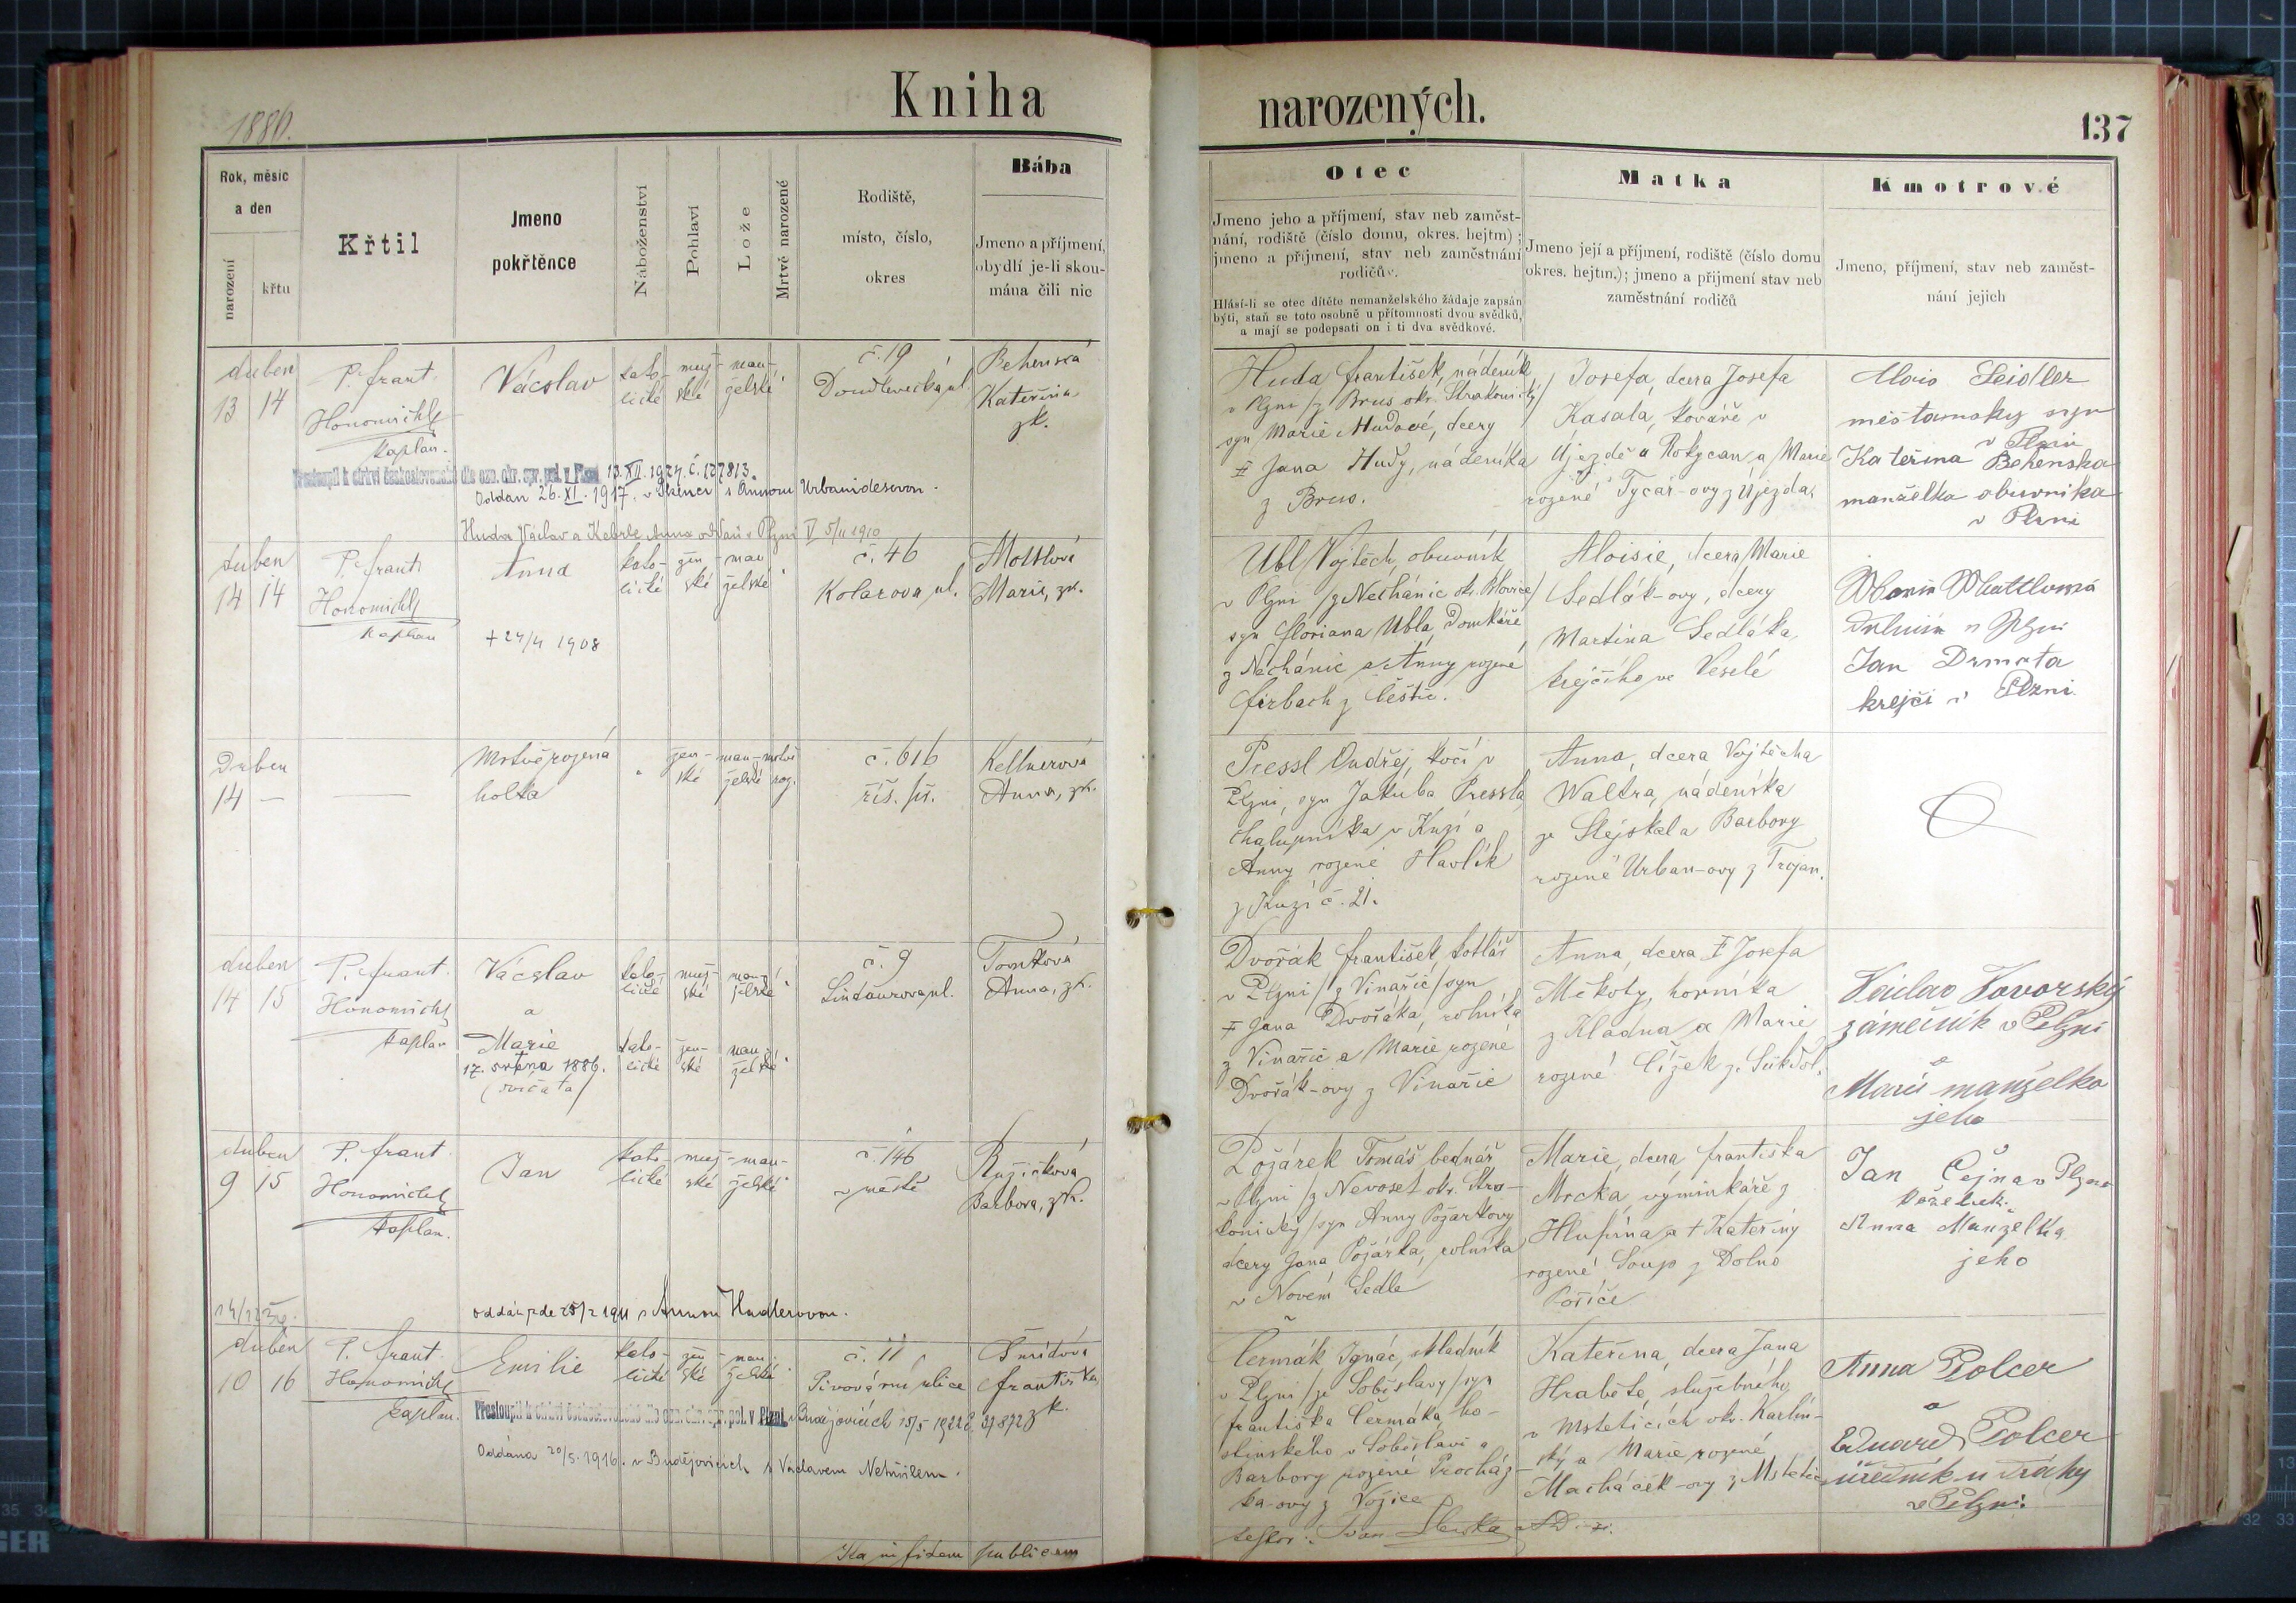 1886.
Kniha
narozených.
137
Rok, měsíc
a den
narození
křtu
Křtil
Jmeno
pokřtěnce
Náboženství
Pohlaví
Lože
Mrtvě narozené
Rodiště,
místo, číslo,
okres
Bába
Jmeno a příjmení,
obydlí je-li skou-
mána čili nic
Otec
Jmeno jeho a příjmení, stav neb zaměst-
nání, rodiště (číslo domu, okres. hejtm);
jmeno a příjmení, stav neb zaměstnání
rodičův.
Hlásí-li se otec dítěte nemanželského žádaje zapsán
býti, staň se toto osobně u přítomnosti dvou svědků,
a mají se podepsati on i ti dva svědkové.
Matka
Jmeno její a příjmení, rodiště (číslo domu
okres. hejtm.); jmeno a příjmení stav neb
zaměstnání rodičů
Kmotrové
Jmeno, příjmení, stav neb zaměst-
nání jejich
duben
13 14
P. frant.
Honomichl
kaplan.
Vácslav
kato-
lické
muž-
ské
man-
želské
č. 19
Doudlevecká ul.
Behenská
Kateřina
zk.
Přestoupil k církvi československé dle ozn. okr. spr. pol. v Plzni 13.XII.1924 č. 127813.
Oddán 26.XI.1917. v s Annou Urbanidesovou.
Huda Václav a Anna oddáni v Plzni V 5/11 1910
Huda František, nádeník
v Plzni /z Brus okr. Strakonický/
syn Marie Hudové, dcery
† Jana Hudy, nádeníka
z Brus.
Josefa, dcera Josefa
Kasala, kováře v
Újezdě u Rokycan a Marie
rozené Tycar-ovy z Újezda.
Alois Seidler
měšťanský syn
v Plzni
Kateřina Behenska
manželka obuvníka
v Plzni
duben
14 14
P. frant.
Honomichl
kaplan
Anna
kato-
lické
žen-
ské
man-
želské
č. 46
Kolarova ul.
Mottlová
Marie, zk.
† 24/4 1908
Ubl Vojtěch, obuvník
v Plzni /z Nechánic ok. Blovice/
syn Floriana Ubla, domkáře
z Nechánic a Anny rozené
Firbach z Čéštic.
Aloisie, dcera Marie
Sedlák-ovy, dcery
Martina Sedláka,
krejčího ve Veselé
Marie Mattlová
v Plzni
Jan Drmota
krejčí v Plzni.
Duben
14 —
Mrtvě rozená
holka
žen-
ské
man-
želské
mrtvě
roz.
č. 616
říš. př.
Kellnerová
Anna, zk.
Pressl Ondřej, kočí v
Plzni, syn Jakuba Pressla,
chalupníka v Kuzí a
Anny rozené Havlík
z Kuzí č. 21.
Anna, dcera Vojtěcha
Waltra, nádeníka
ze Slejskal a Barbory
rozené Urban-ovy z Trojan.
duben
14 15
P. frant.
Honomichl
kaplan
Vácslav
a
Marie
17. srpna 1886.
(dvojčata)
kato-
lické
muž-
ské
man-
želské
kato-
lické
žen-
ské
man-
želské
č. 9
Lindaurova ul.
Tomková
Anna, zk.
Dvořák František, kotlář
v Plzni /z Vinařic/ syn
† Jana Dvořáka, rolníka
z Vinařic a Marie rozené
Dvořák-ovy z Vinařic
Anna, dcera † Josefa
Měkoty, horníka
z Kladna a Marie
rozené Čížek z Sukdol.
Václav Javorský
zámečník v Plzni
a
Marie manželka
jeho
duben
9 15
P. frant.
Honomichl
kaplan.
Jan
kato-
lické
muž-
ské
man-
želské
č. 146
v městě
Růžičková
Barbora, zk.
oddán zde 25/2 1911 s Annou Hudlerovou.
Požárek Tomáš bednář
v Plzni /z Nevoset okr. Stra-
konický/ syn Anny Požárkovy
dcery Jana Požárka, rolníka
v Novém Sedle
Marie, dcera Františka
Mrcka, výminkáře z
Hlupína a † Kateřiny
rozené Soup z Dolno
Poříče
Jan Čejna v Plzni
Anna Manželka
jeho
duben
10 16
P. frant.
Honomichl
kaplan.
Emilie
kato-
lické
žen-
ské
man-
želské
č. 11
Pivovární ulice
Šmídová
Františka,
zk.
Přestoupil k církvi československé dle ozn. okr. spr. pol. v Plzni. v Budějovicích 15/5 1922 č. 37872
Oddána 20/5.1916. v Budějovicích s Václavem Netušilem.
Čermák Ignác, skladník
v Plzni /ze Soběslavy/ syn
Františka Čermáka, ho-
stinského v Soběslavi a
Barbory rozené Procház-
ka-ovy z Vožice
Kateřina, dcera Jana
Hraběte, služebného
v Mstěticích okr. Karlín-
ský a Marie rozené
Macháček-ovy z Mstětic
Anna Polcer
a
Eduard Polcer
úředník u dráhy
v Plzni.
Ka in fidem publicam